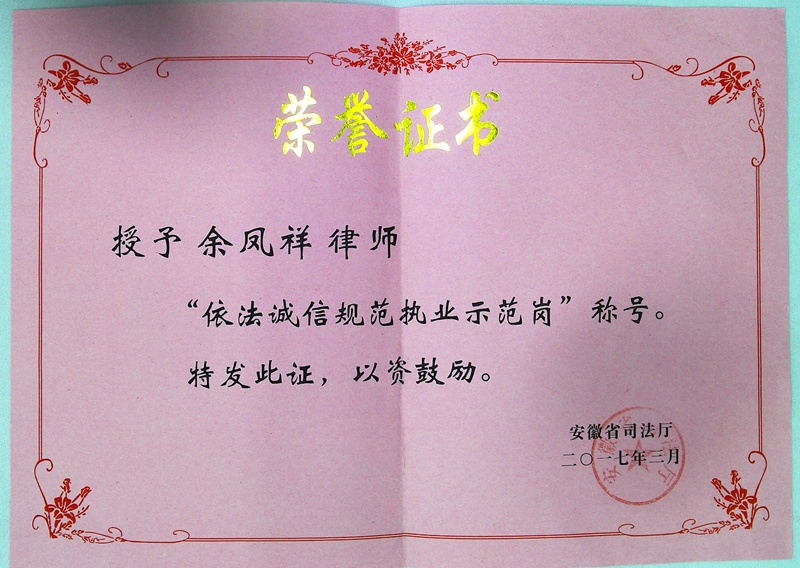 荣誉证书
授予 余凤祥 律师
“依法诚信规范执业示范岗”称号。
特发此证，以资鼓励。
安徽省司法厅
二〇一七年三月